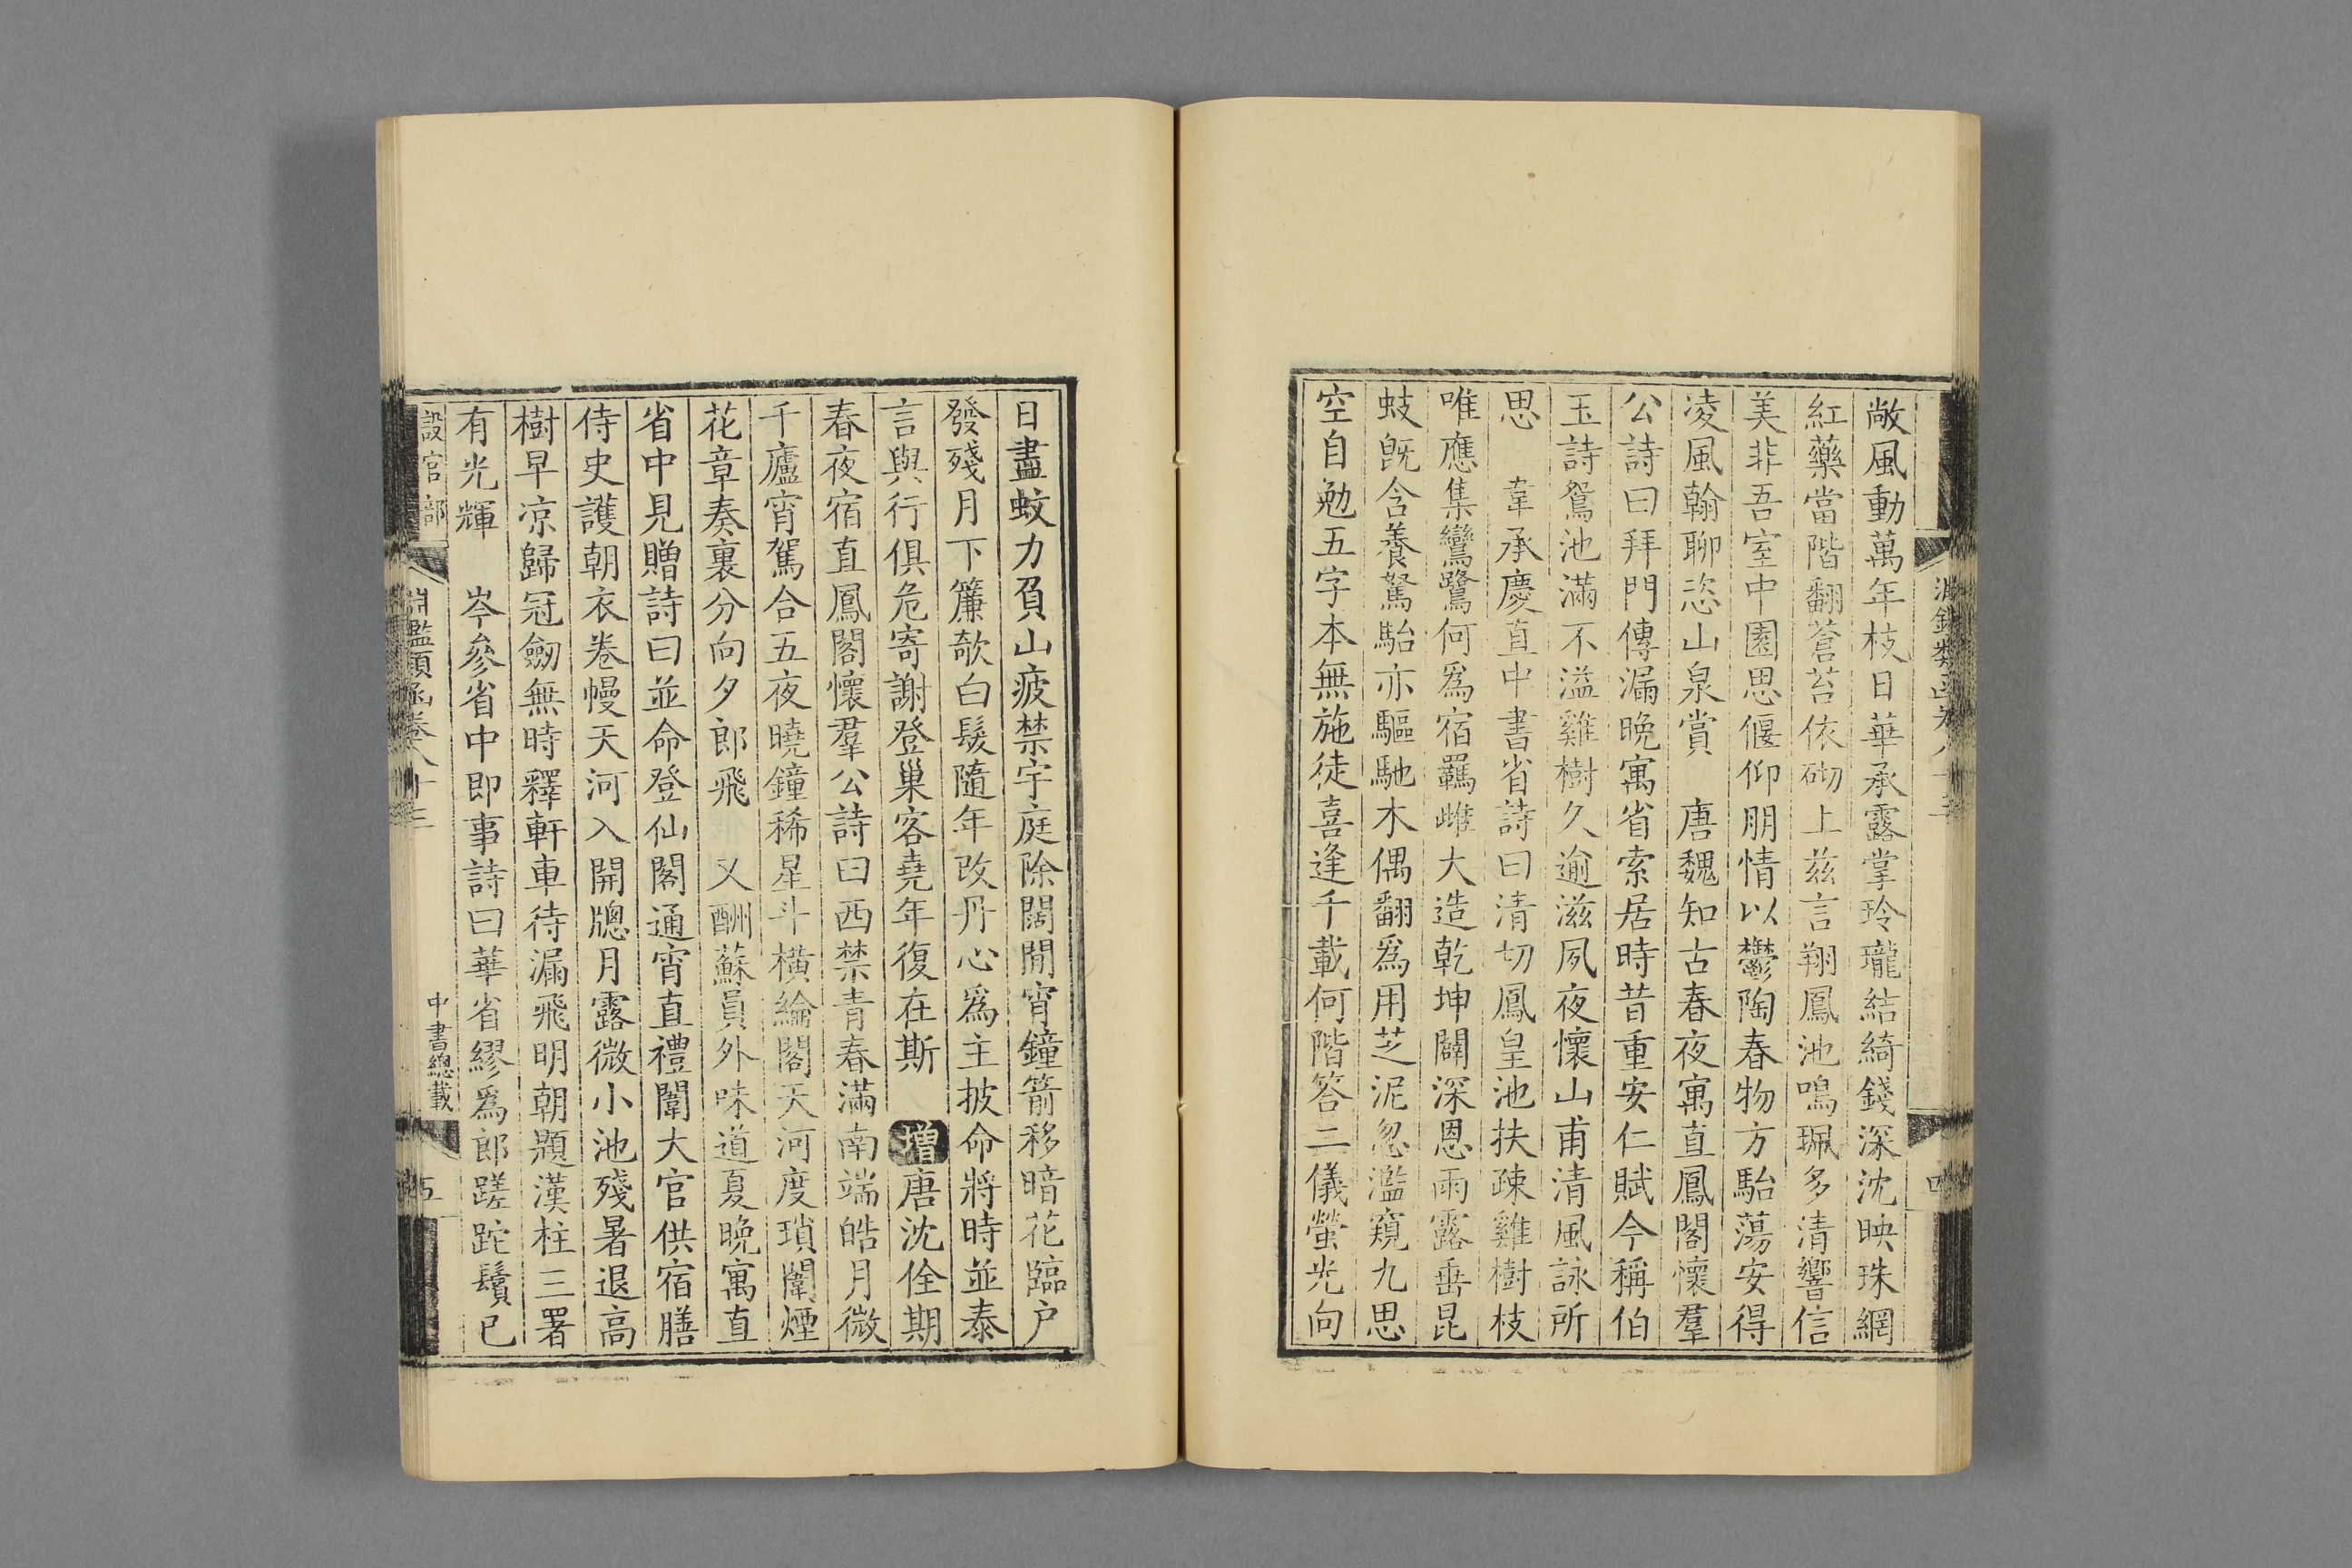 敞風動萬年枝日華承露掌玲瓏結綺錢深沈映珠網
紅藥當階翻蒼苔依砌上茲言翔鳳池鳴珮多清響信
美非吾室中園思偃仰朋情以鬱陶春物方駘蕩安得
凌風翰聊恣山泉賞　唐魏知古春夜寓直鳳閣懷羣
公詩曰拜門傳漏晚寓省索居時昔重安仁賦今稱伯
玉詩鴛池滿不溢雞樹久逾滋夙夜懷山甫清風詠所
思　韋承慶直中書省詩曰清切鳳皇池扶疎雞樹枝
唯應集鸞鷺何爲宿羈雌大造乾坤闢深恩雨露垂昆
蚑旣含養駑駘亦驅馳木偶翻爲用芝泥忽濫窺九思
空自勉五字本無施徒喜逢千載何階答二儀螢光向
日盡蚊力負山疲禁宇庭除闊閒宵鐘箭移暗花臨户
發殘月下簾欹白髮隨年改丹心爲主披命將時並泰
言與行俱危寄謝登巢客堯年復在斯　增唐沈佺期
春夜宿直鳳閣懷羣公詩曰西禁青春滿南端皓月微
千廬宵駕合五夜曉鐘稀星斗橫綸閣天河度瑣闈煙
花章奏裏分向夕郎飛　又酬蘇員外味道夏晚寓直
省中見贈詩曰並命登仙閣通宵直禮闈大官供宿膳
侍史護朝衣卷幔天河入開牕月露微小池殘暑退高
樹早凉歸冠劒無時釋軒車待漏飛明朝題漢柱三署
有光輝　岑參省中即事詩曰華省繆爲郎蹉跎鬢已
設官部
淵鑑類函卷八十三
中書總載
五